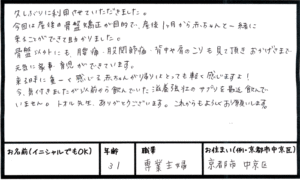 久しぶりに利用させていただきました。
今回は産後の骨盤矯正が目的で、産後1ヶ月から赤ちゃんと一緒に
来ることができて助かりました。
骨盤以外にも腰痛・股関節痛・背中や肩のこりも良くて頂きおかげさまで
元気に家事・育児ができています。
来る時に重ーく感じる赤ちゃんが帰りはとっても軽く感じます!
今、気付きましたが以前から飲んでいた滋養強壮のサプリを最近飲んで
いません。トオル先生、ありがとうございます。これからもよろしくお願いします。
お名前(イニシャルでもOK)
年齢
職業
お住まい(例・京都市中京区)
31
専業主婦
京都市 中京区